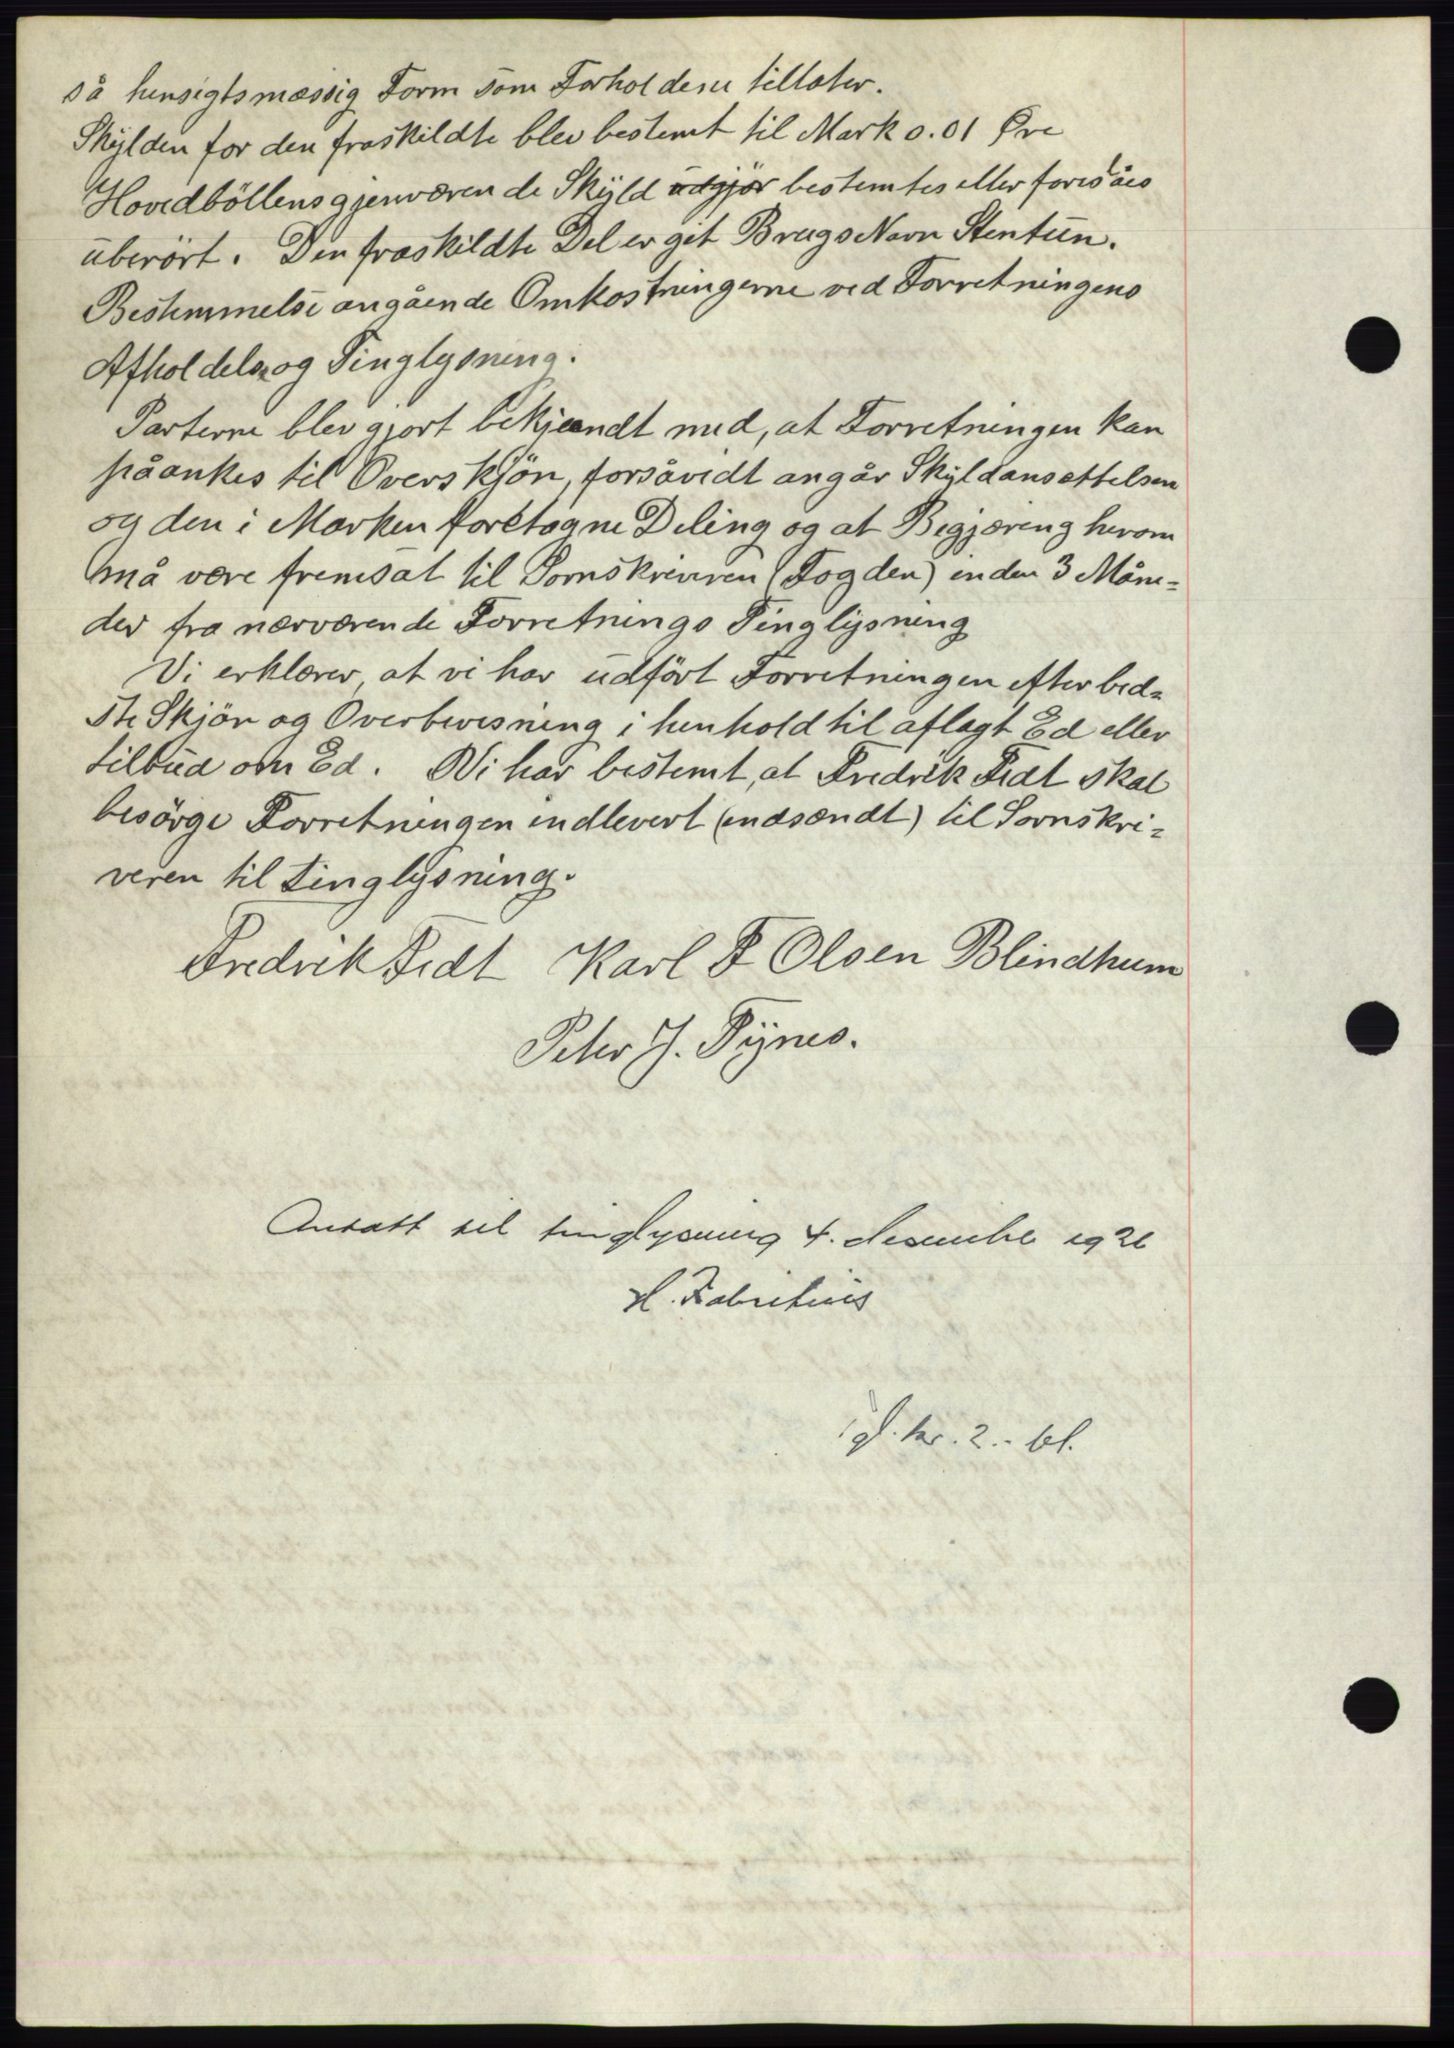 så hensigtsmæssig Form som Forholdene tillater.
Skylden for den fraskildte blev bestemt til Mark 0.01 Øre
Hovedböllens gjenværende Skyld udgjør bestemtes eller foreslåes
uberört. Den fraskildte Del er git Brugs Navn Stentun.
Bestemmelse angående Omkostningerne ved Forretningens
Afholdelse og Tinglysning.
Parterne blev gjort bekjeendt med, at Forretningen kan
påankes til Overskjön, forsåvidt angår Skyldansettelsen
og den i Marken foretagne Deling og at Begjæring herom
må være fremsat til Sornskriveren (Fogden) inden 3 Måne=
der fra nærværende Forretnings Tinglysning
Vi erklærer, at vi har udfört Forretningen efter bed=
ste Skjön og Overbevisning i henhold til aflagt Ed eller
tilbud om Ed. Vi har bestemt, at Fredrik Fedt skal
besörge Forretningen indlevert (indsendt) til Sornskri=
veren til tinglysning.
Fredrik Fedt Karl F Olsen Blindhum
Peter J. Tynes.
Antatt til tinglysning 4. desember 1926
H. Fabritius
gl. kr. 2.- bl.